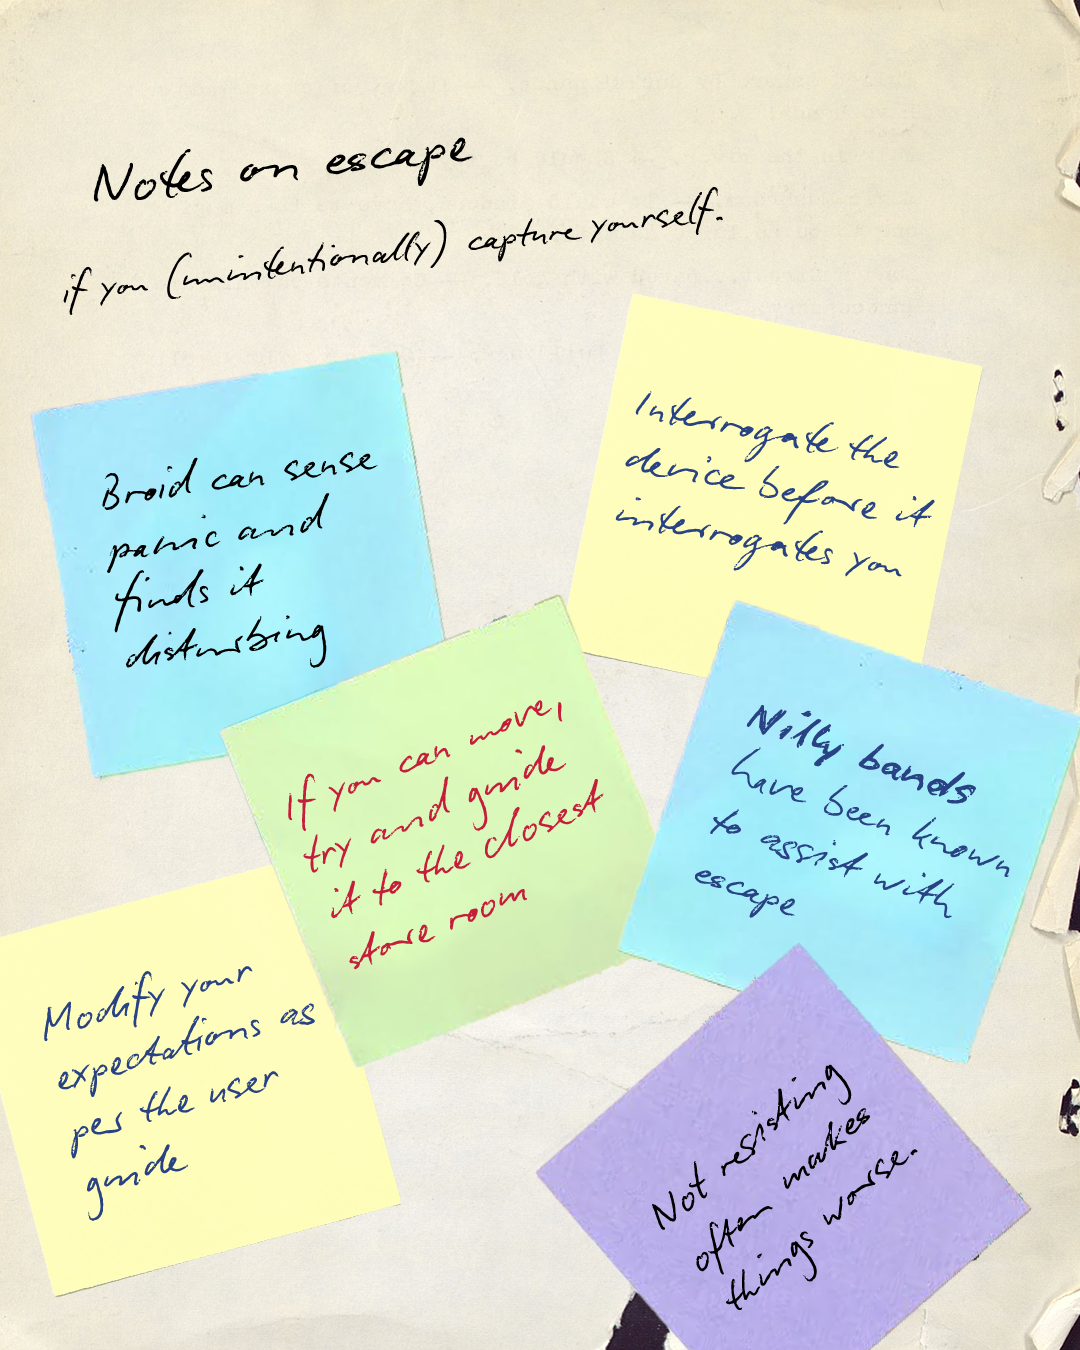 Notes on escape
if you (unintentionally) capture yourself.
Broid can sense
panic and
finds it
disturbing
Interrogate the
device before it
interrogates you
If you can move,
try and guide
it to the closest
store room
Nilly bands
have been known
to assist with
escape
Modify your
expectations as
per the user
guide
Not resisting
often makes
things worse.